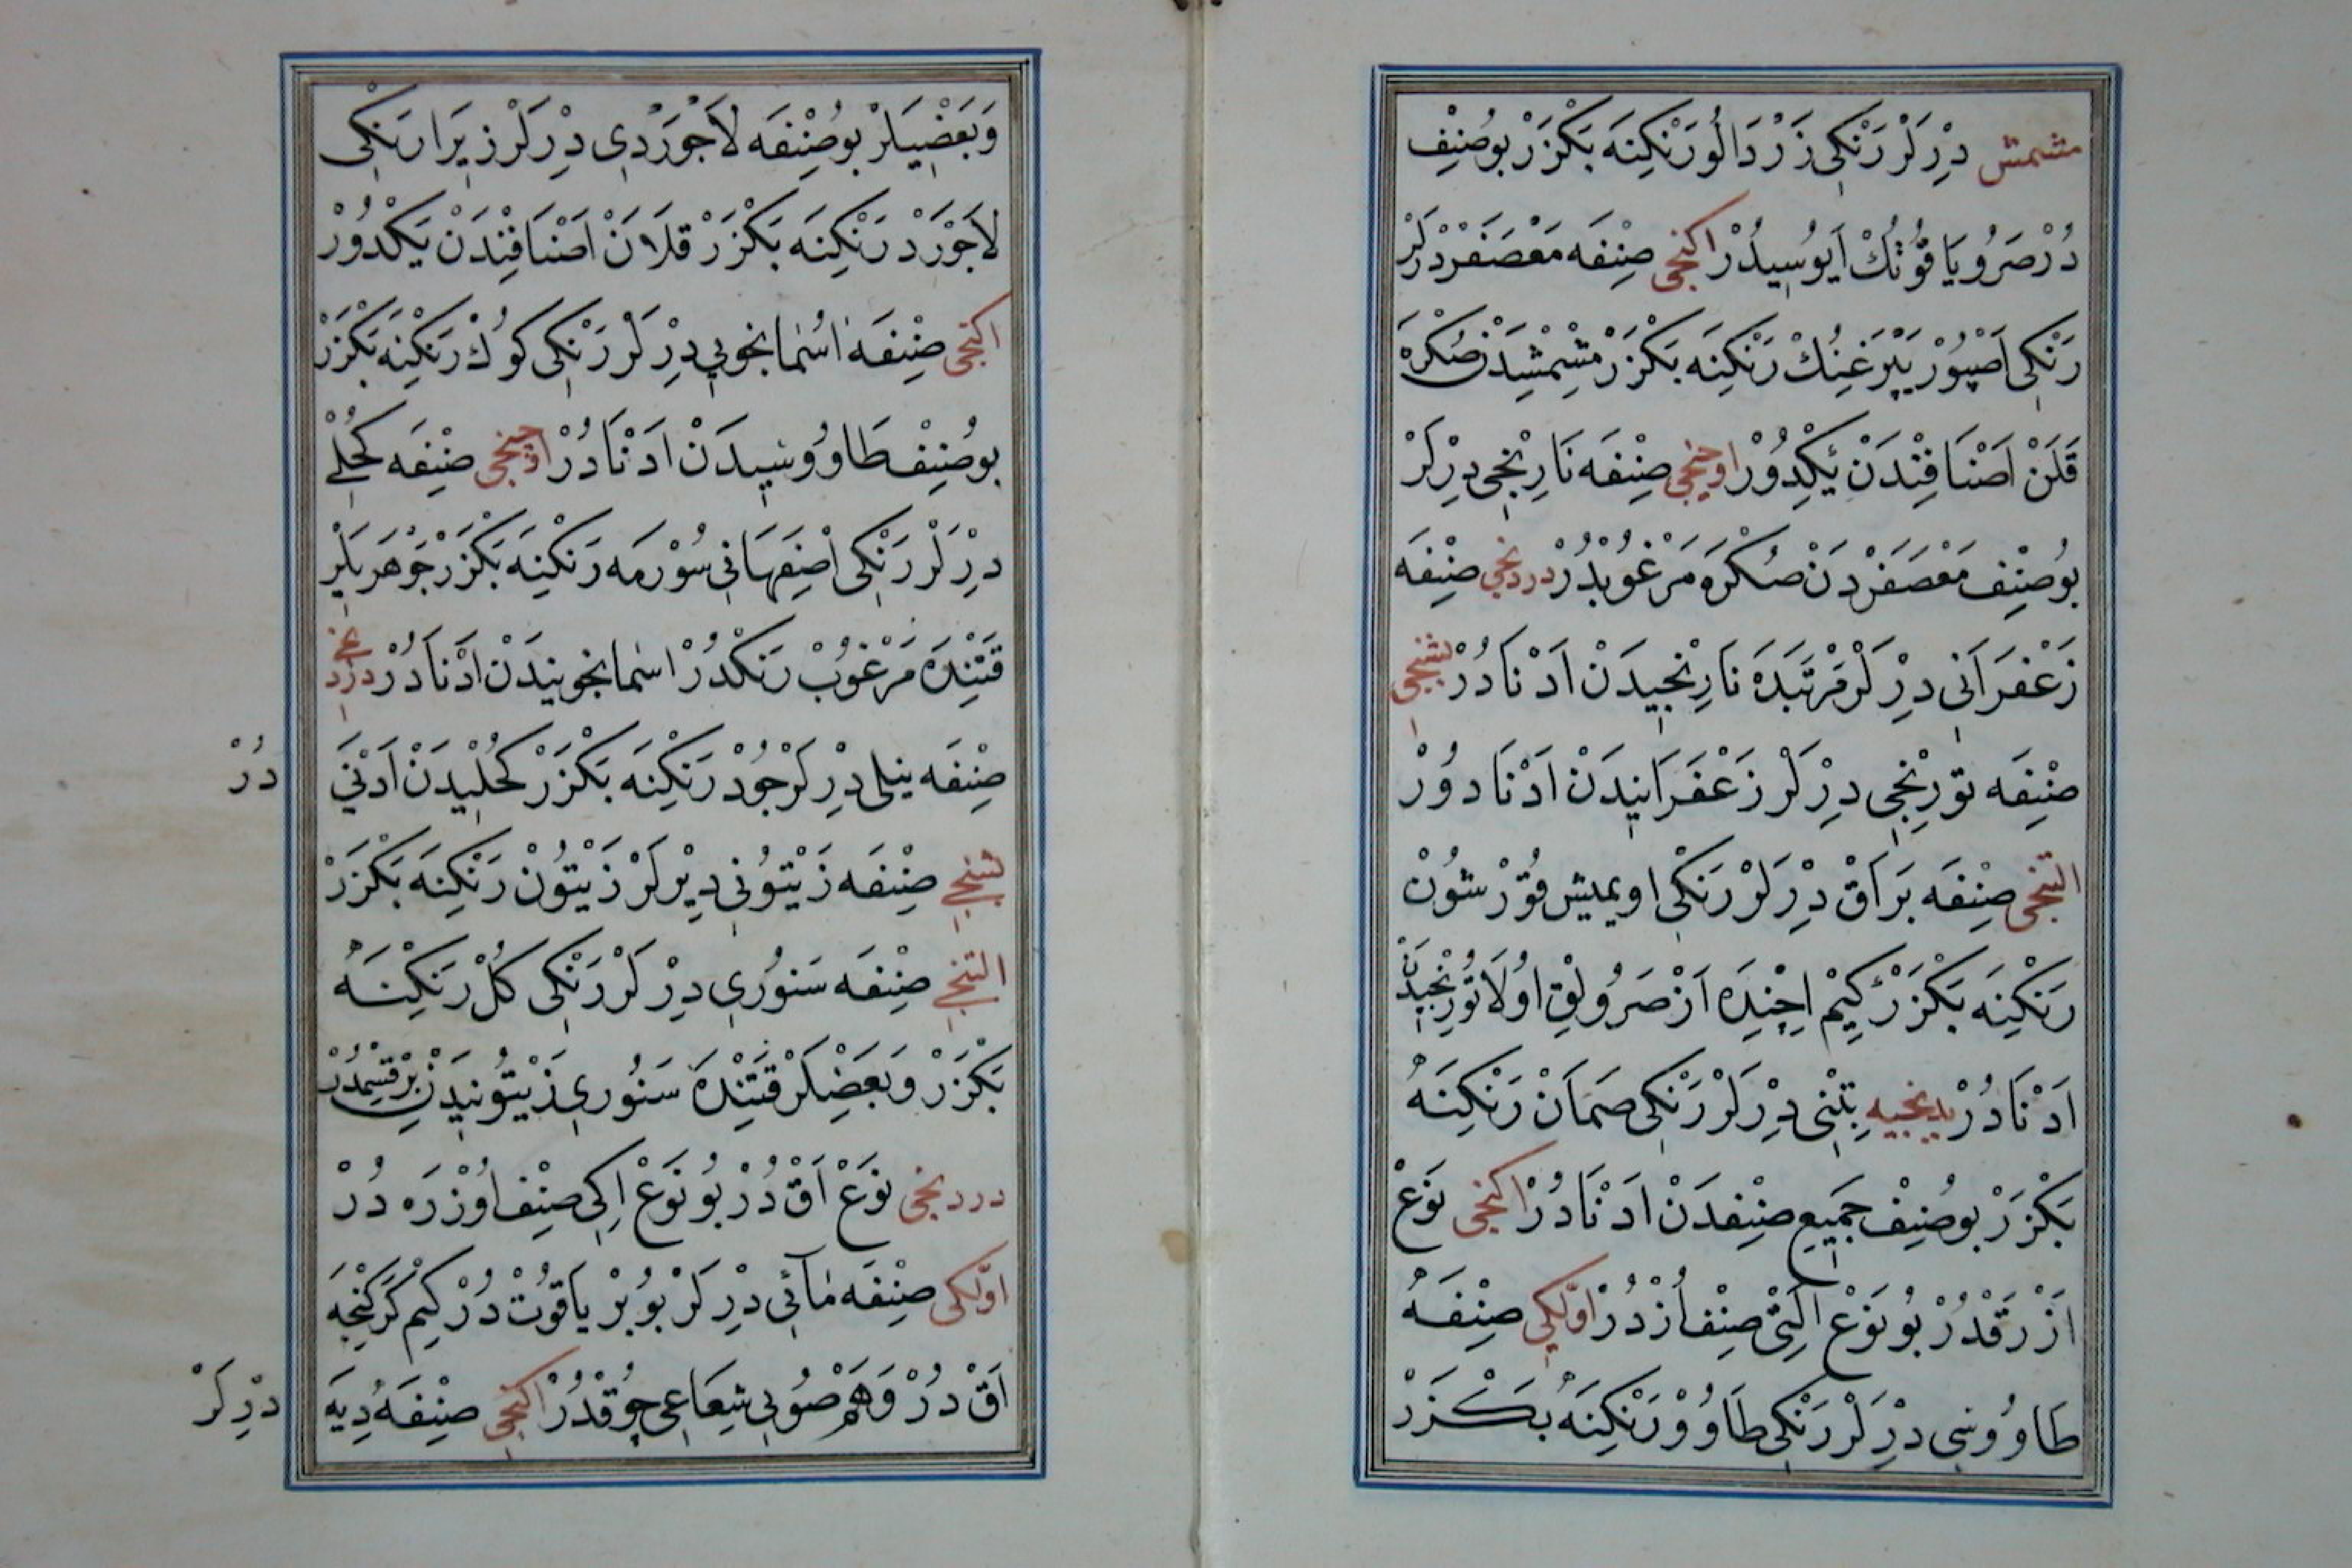 مشمش دِرْلَرْ رَنْكِی زَرْدَالُو رَنْكِینَه بَكْزَرْ بُوصِنِفْ
دُرْ صَرُو یَاقُوتُكْ اَیُوسِیدُرْ اكنجی صِنِفَه مَعْصَفَرْ دِرْلَرْ
رَنْكِی اَصْپُورْ یَپْرَغِنُكْ رَنْكِنَه بَكْزَرْ مِشْمِشِیدَنْ صُكْرَه
قَلَنْ اَصْنَافِنْدَنْ یَكْدُورْ اوچنجی صِنِفَه نَارِنْجِی دِرْلَرْ
بُوصِنِفْ مَعْصَفَرْدَنْ صُكْرَه مَرْغُوبْدُرْ دردنجی صِنِفَه
زَعْفَرَانِی دِرْلَرْ مَرْتَبَدَه نَارِنْجِیدَنْ اَدْنَادُرْ بشنجی
صِنِفَه تُورِنْجِی دِرْلَرْ زَعْفَرَانِیدَنْ اَدْنَادُورْ
التنجی صِنِفَه بَرَاقْ دِرْلَرْ رَنْكِی اویمیش قُورْشُونْ
رَنْكِنَه بَكْزَرْ كِیمْ اِچِنْدَه اَزْ صَرُولِقْ اُولَا تُورِنْجِیدَنْ
اَدْنَادُرْ یدنجیه تِبْنِی دِرْلَرْ رَنْكِی صَمَانْ رَنْكِنَهُ
بَكْزَرْ بُوصِنِفْ جَمِیعِ صِنِفْدَنْ اَدْنَادُرْ اكنجی نَوْعْ
اَزْرَقْدُرْ بُو نَوْعْ اَلْتِی صِنِفْ اُزْدُرْ اوّلكی صِنِفَهُ
طَاوُوسِی دِرْلَرْ رَنْكِی طَاوُوْ رَنْكِنَهُ بَكْزَرْ
وَبَعْضِیلَرْ بُوصِنِفَه لَاجْوَرْدِی دِرْلَرْ زِیرَا رَنْكِی
لَاجْوَرْدْ رَنْكِنَه بَكْزَرْ قَلَانْ اَصْنَافِنْدَنْ یَكْدُورْ
اكنجی صِنِفَه اٰسْمَانجُونِی دِرْلَرْ رَنْكِی كُوكْ رَنْكِنَه بَكْزَرْ
بُوصِنِفْ طَاوُوسِیدَنْ اَدْنَادُرْ اوچنجی صِنِفَه كُحْلِی
دِرْلَرْ رَنْكِی اِصْفَهَانِی سُورْمَه رَنْكِنَه بَكْزَرْ جَوْهَرِیلَرْ
قَتِنْدَه مَرْغُوبْ رَنْكْدُرْ اسمانجونیدَنْ اَدْنَادُرْ دردنجی
صِنِفَه نیلی دِرْلَرْ جُودْ رَنْكِنَه بَكْزَرْ كُحْلِیدَنْ اَدْنَی دُرْ
بشنجی صِنِفَه زَیْتُونِی دِیْرلَرْ زَیْتُونْ رَنْكِنَه بَكْزَرْ
التنجی صِنِفَه سَنُورِی دِرْلَرْ رَنْكِی كُلْ رَنْكِنَهُ
بَكْزَرْ وَبَعْضِلَرْ قَتِنْدَه سَنُورِی زَیْتُونِیدَنْ بِرْ قِسِمْدُرْ
دردنجی نَوْعْ اَقْ دُرْ بُو نَوْعْ اِكِی صِنِفْ اُوزْرَه دُرْ
اوّلكی صِنِفَه مَائِی دِرْلَرْ بُو بِرْ یَاقُوتْ دُرْ كِیمْ كَرْكِنْجَه
اَقْ دُرْ وَهَمْ صُوبِی شِعَاعِی چُوقْدُرْ اكنجی صِنِفَهُ دِیَه دِرْلَرْ